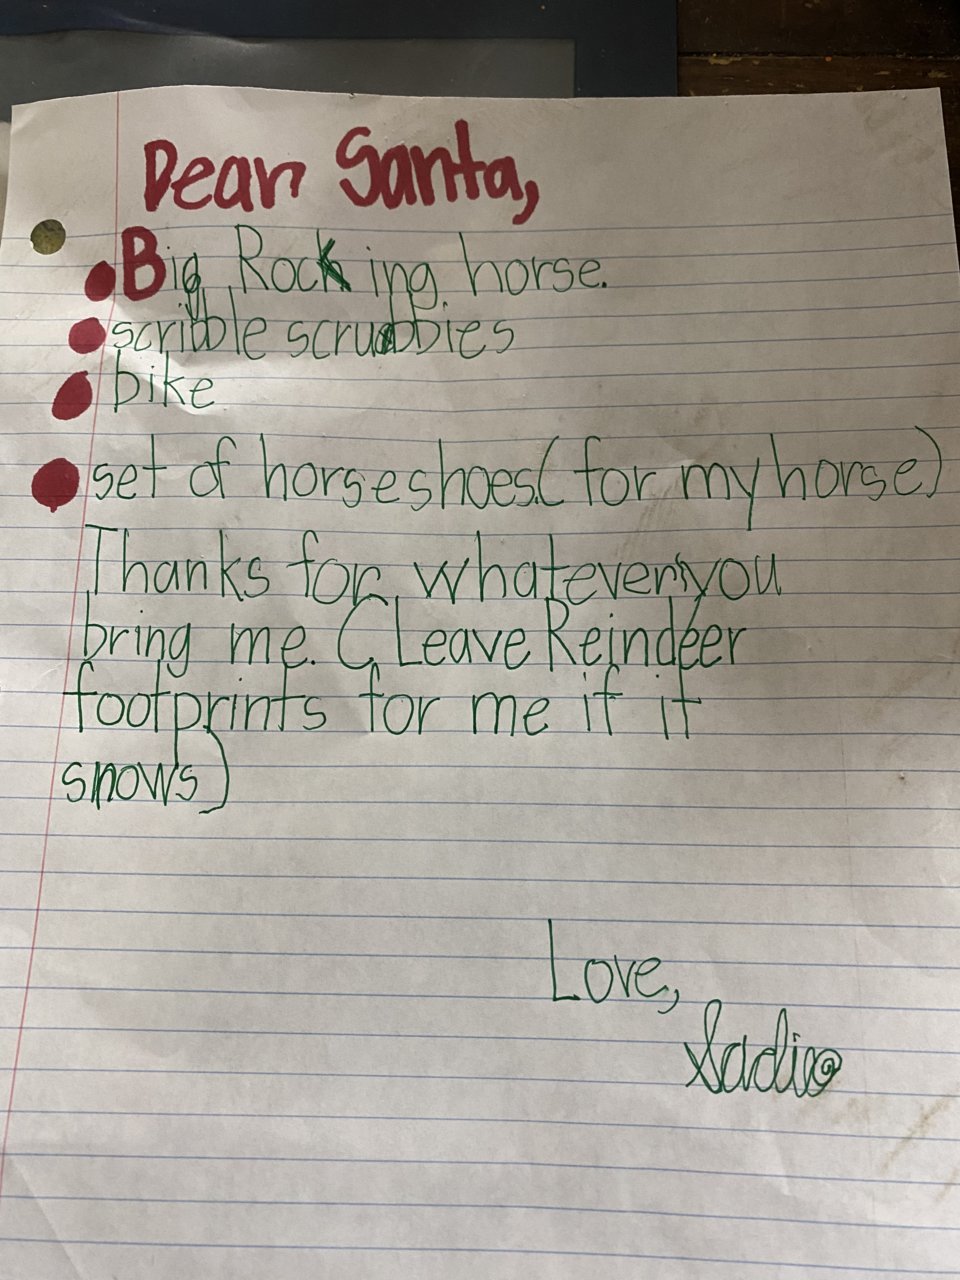 Dear Santa,
Big Rocking horse.
scribble scrubbies
bike
set of horseshoes.(for my horse)
Thanks for whatever you
bring me. (Leave Reindeer
footprints for me if it
snows)
Love,
Sadie